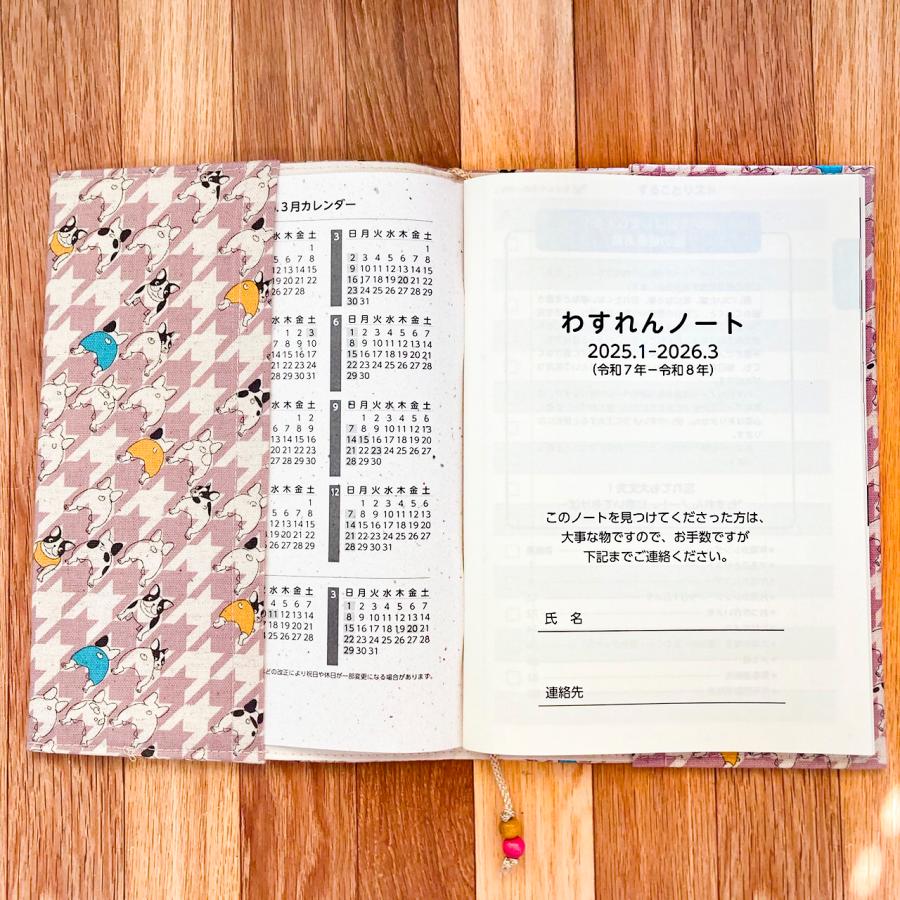 .3月カレンダー
水 木 金 土
1
5 6 7 8
12 13 14 15
19 20 21 22
26 27 28
3
日 月 火 水 木 金 土
1
2 3 4 5 6 7 8
9 10 11 12 13 14 15
16 17 18 19 20 21 22
23 24 25 26 27 28 29
30 31
水 木 金 土
1 2 3
7 8 9 10
14 15 16 17
21 22 23 24
28 29 30 31
6
日 月 火 水 木 金 土
1 2 3 4 5 6 7
8 9 10 11 12 13 14
15 16 17 18 19 20 21
22 23 24 25 26 27 28
29 30
水 木 金 土
1 2
6 7 8 9
13 14 15 16
20 21 22 23
27 28 29 30
9
日 月 火 水 木 金 土
1 2 3 4 5 6
7 8 9 10 11 12 13
14 15 16 17 18 19 20
21 22 23 24 25 26 27
28 29 30
水 木 金 土
12
日 月 火 水 木 金 土
1 2 3 4 5 6
7 8 9 10 11 12 13
14 15 16 17 18 19 20
21 22 23 24 25 26 27
28 29 30 31
水 木 金 土
4 5 6 7
11 12 13 14
18 19 20 21
25 26 27 28
3
日 月 火 水 木 金 土
1 2 3 4 5 6 7
8 9 10 11 12 13 14
15 16 17 18 19 20 21
22 23 24 25 26 27 28
29 30 31
どの改正により祝日や休日が一部変更になる場合があります。
わすれんノート
2025.1-2026.3
(令和7年ー令和8年)
このノートを見つけてくださった方は、
大事な物ですので、お手数ですが
下記までご連絡ください。
氏 名
連絡先